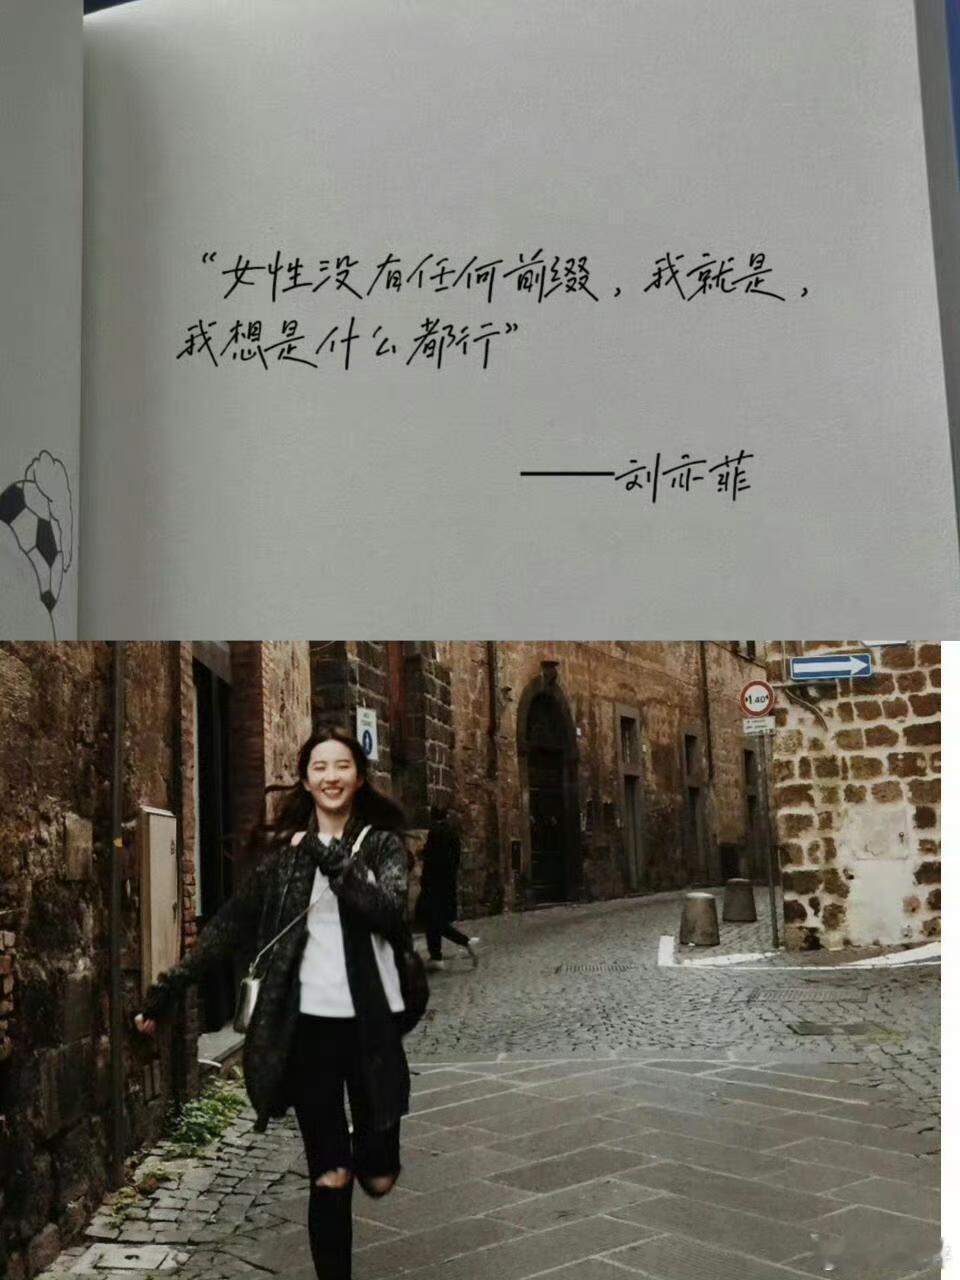 “女性没有任何前缀，我就是，
我想是什么都行”
——刘亦菲
1.40